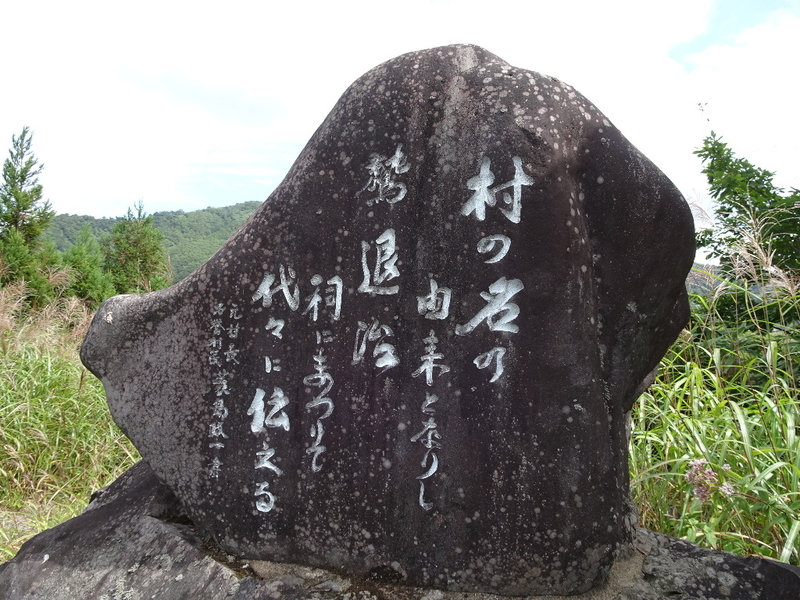 村の名の
由来となりし
鷲退治
祠にまつりて
代々に伝える
元村長
名誉村民